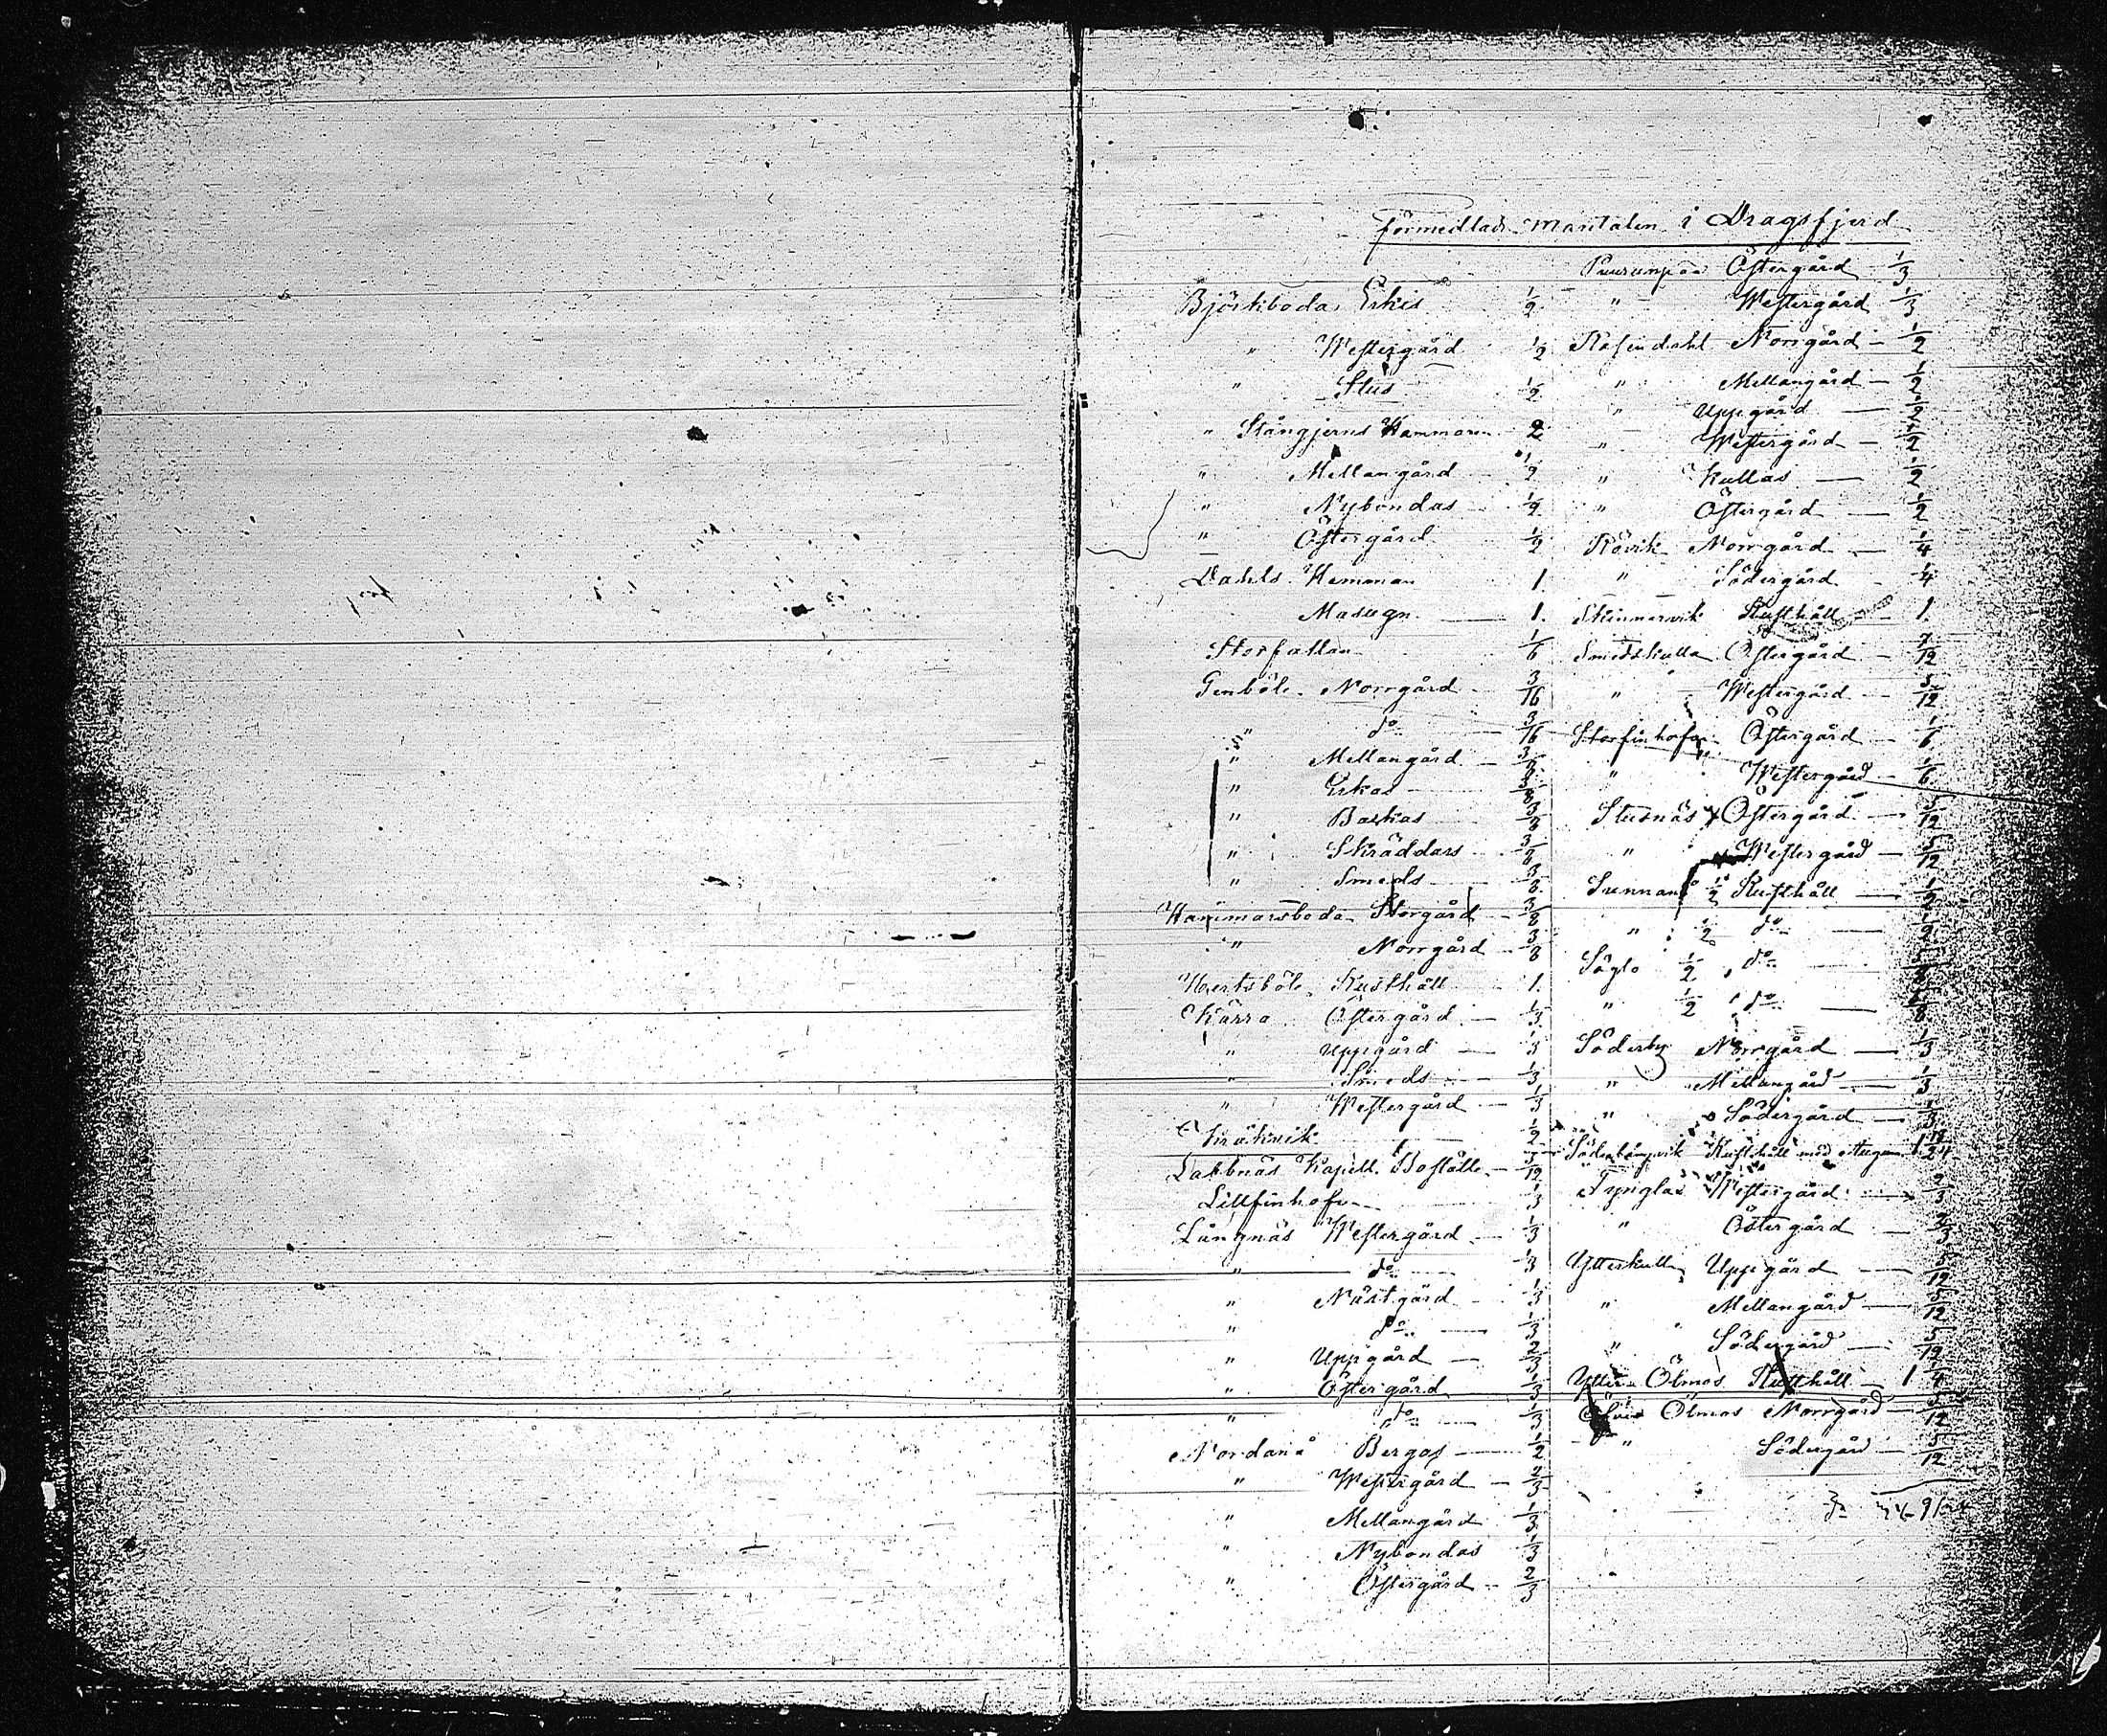 förmedlade mantalen i Dragsfjerd
Björkboda Erkis 1/2
" Westergård 1/2
" Stus 1/2
" Stångjerns Hammaren 2
" Mellangård 1/2
" Nybondas 1/2
" Östergård 1/2
Dahls Hemman 1.
Masugn 1.
Storfallan 1/6
Genböle Norrgård 3/16
" do 3/16
" Mellangård 3/8
" Erkas 3/8
" Baskas 3/8
" Skräddars 3/8
" Smeds 3/8
Hammarsboda Storgård 3/8
" Norrgård 3/8
Hertsböle Rusthåll 1.
Kärra Östergård 1/3
" Uppigård 1/3
" Smeds 1/3
" Westergård 1/3
Kråkvik 1/2
Labbnäs Kapell. Boställe 5/12
Lillfinhofva 1/3
Långnäs Westergård 1/3
" do 1/3
" Nästgård 1/3
" do 1/3
" Uppigård 2/3
" Östergård 1/3
" do 1/3
Nordanå Bergas 1/2
" Westergård 2/3
" Mellangård 1/3
" Nybondas 1/3
" Östergård 2/3
Purunpää Östergård 1/3
" Westergård 1/3
Rosendahl Norrgård 1/2
" Mellangård 1/2
" Uppgård 1/2
" Westergård 1/2
" Kullas 1/2
" Östergård 1/2
Rövik Norrgård 1/4
" Södergård 1/4
Skinnarvik Rusthåll 1.
Smedskulla Östergård 7/12
" Westergård 5/12
Storfinhofva Östergård 1/6
" Westergård 1/6
Stusnäs Östergård 5/12
" Westergård 5/12
Sunnanå 1/2 Rusthåll 1/2
" 1/2 do 1/2
Söglo 1/2 do
" 1/2 do
Söderby Norrgård 1/3
" Mellangård 1/3
" Södergård 1/3
Söderlångvik Rusthåll med
Tynglax Westergård 2/3
" Östergård 2/3
Ytterkulla Uppigård 5/12
" Mellangård 5/12
" Södergård 5/12
Ytter Ölmos Rusthåll 1 1/4
Öfver Ölmos Norrgård 5/12
" Södergård 5/12